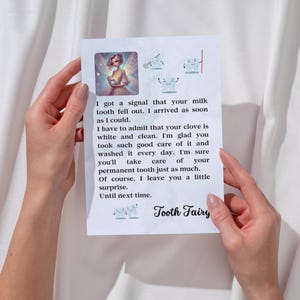 I got a signal that your milk
tooth fell out. I arrived as soon
as I could.
I have to admit that your clove is
white and clean. I'm glad you
took such good care of it and
washed it every day. I'm sure
you'll take care of your
permanent tooth just as much.
Of course, I leave you a little
surprise.
Until next time.
Tooth Fairy